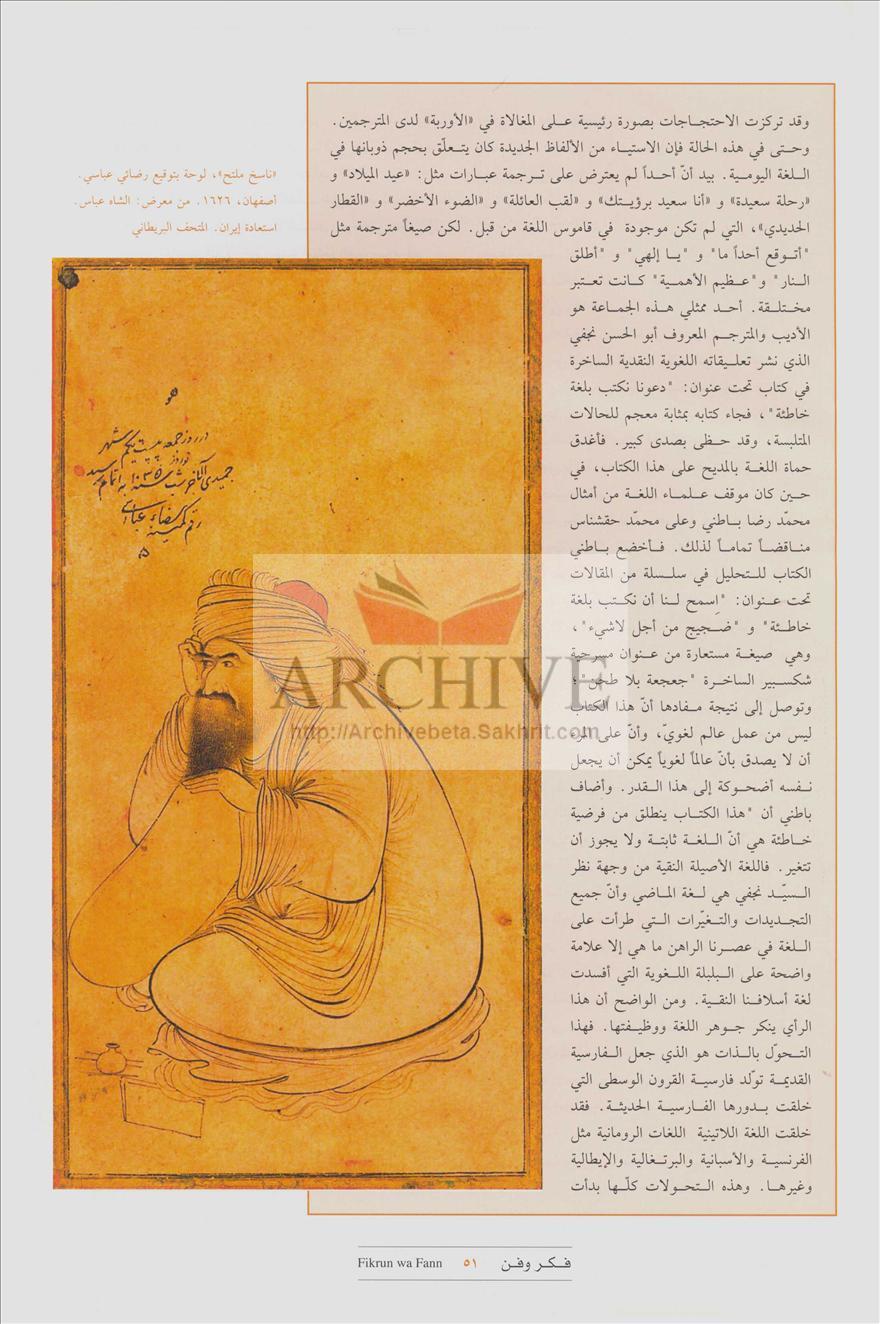 وقد تركزت الاحتجـاجات بصورة رئيسية عـلـى المغالاة في «الأوربة» لدى المترجمين.
وحـتـى في هذه الحالة فإن الاستيـاء من الألفاظ الجديدة كان يتـعـلّق بحجم ذوبانها في
اللـغة اليومـيـة. بيد أنّ أحـداً لم يعترض على تـرجمة عبـارات مثل: «عيد الميلاد» و
«رحلة سعيدة» و «أنا سعيد برؤيـتك» و «لقب العائلة» و «الضوء الأخضر» و «القطار
الحديدي»، التي لم تكن موجودة في قاموس اللغة من قبل. لكن صيغاً مترجمة مثل
"أتـوقع أحداً ما" و "يـا إلهي" و "أطلق
الـنار" و"عـظيم الأهمـية" كـانت تعـتبر
مخـتلـقة. أحـد ممثلي هـذه الجماعة هو
الأديب والمترجـم المعروف أبو الحسن نجفي
الذي نشر تعلـيقاته اللغوية النقدية الساخرة
في كتاب تحت عنوان: "دعونا نكتب بلغة
خاطئة"، فجاء كتابه بمثابة معجم للحالات
المتلبسة، وقد حـظى بصدى كبير. فأغدق
حماة اللغـة بالمديح على هذا الكتاب، في
حـين كان موقف عـلمـاء اللغة من أمثال
محمّد رضا بـاطني وعلى محمّد حقشناس
منـاقضـاً تمامـاً لذلك. فـأخضع بـاطني
الكتاب للـتحليل في سلـسلة من المقالات
تحت عـنوان: "اِسمح لـنا أن نكـتب بلغة
خاطـئة" و "ضـجيج من أجل لاشيء"،
وهي صيغـة مستعارة من عـنوان مسرحية
شكسـبير الساخـرة "جعجعة بلا طحن"؛
وتوصل إلى نتيجة مـفادها أنّ هذا الكتاب
ليس من عمل عالم لغويّ، وأنّ على المرء
أن لا يصدق بأنّ عالماً لغوياً يمكن أن يجعل
نـفسه أضحـوكة إلى هذا الـقدر. وأضاف
باطني أن "هذا الكتـاب ينطلق من فرضية
خـاطئة هي أنّ الـلـغة ثابتـة ولا يجوز أن
تتغير. فاللغة الأصيلة النقية من وجهة نظر
الـسيّـد نجفي هي لـغة المـاضي وأنّ جميع
التجـديدات والتـغيّرات الـتي طرأت على
الـلغة في عصـرنا الراهن ما هي إلا علامة
واضحة على الـبلبلة اللـغوية التي أفسدت
لغة أسلافـنا النقية. ومن الواضح أن هذا
الرأي ينكر جـوهر اللغة ووظـيفتها. فهذا
التـحوّل بالـذات هو الذي جعل الـفارسية
القديمـة تولّد فارسيـة القرون الوسطى التي
خلقت بـدورها الفـارسيـة الحديثـة. فقد
خلقت اللغة اللاتينية اللغات الرومانية مثل
الفرنسيـة والأسبانية والبرتـغالية والإيطالية
وغيرهـا. وهذه الـتحـولات كلّـها بدأت
«ناسخ ملتح»، لوحة بتوقيع رضائي عباسي.
أصفهان، ١٦٢٦. من معرض: الشاه عباس.
استعادة إيران. المتحف البريطاني
هو
در روز جمعه بیست یکم شهر
ARCHIVE
http://Archivebeta.Sakhrit.com
فـكـر وفـن ٥١ Fikrun wa Fann